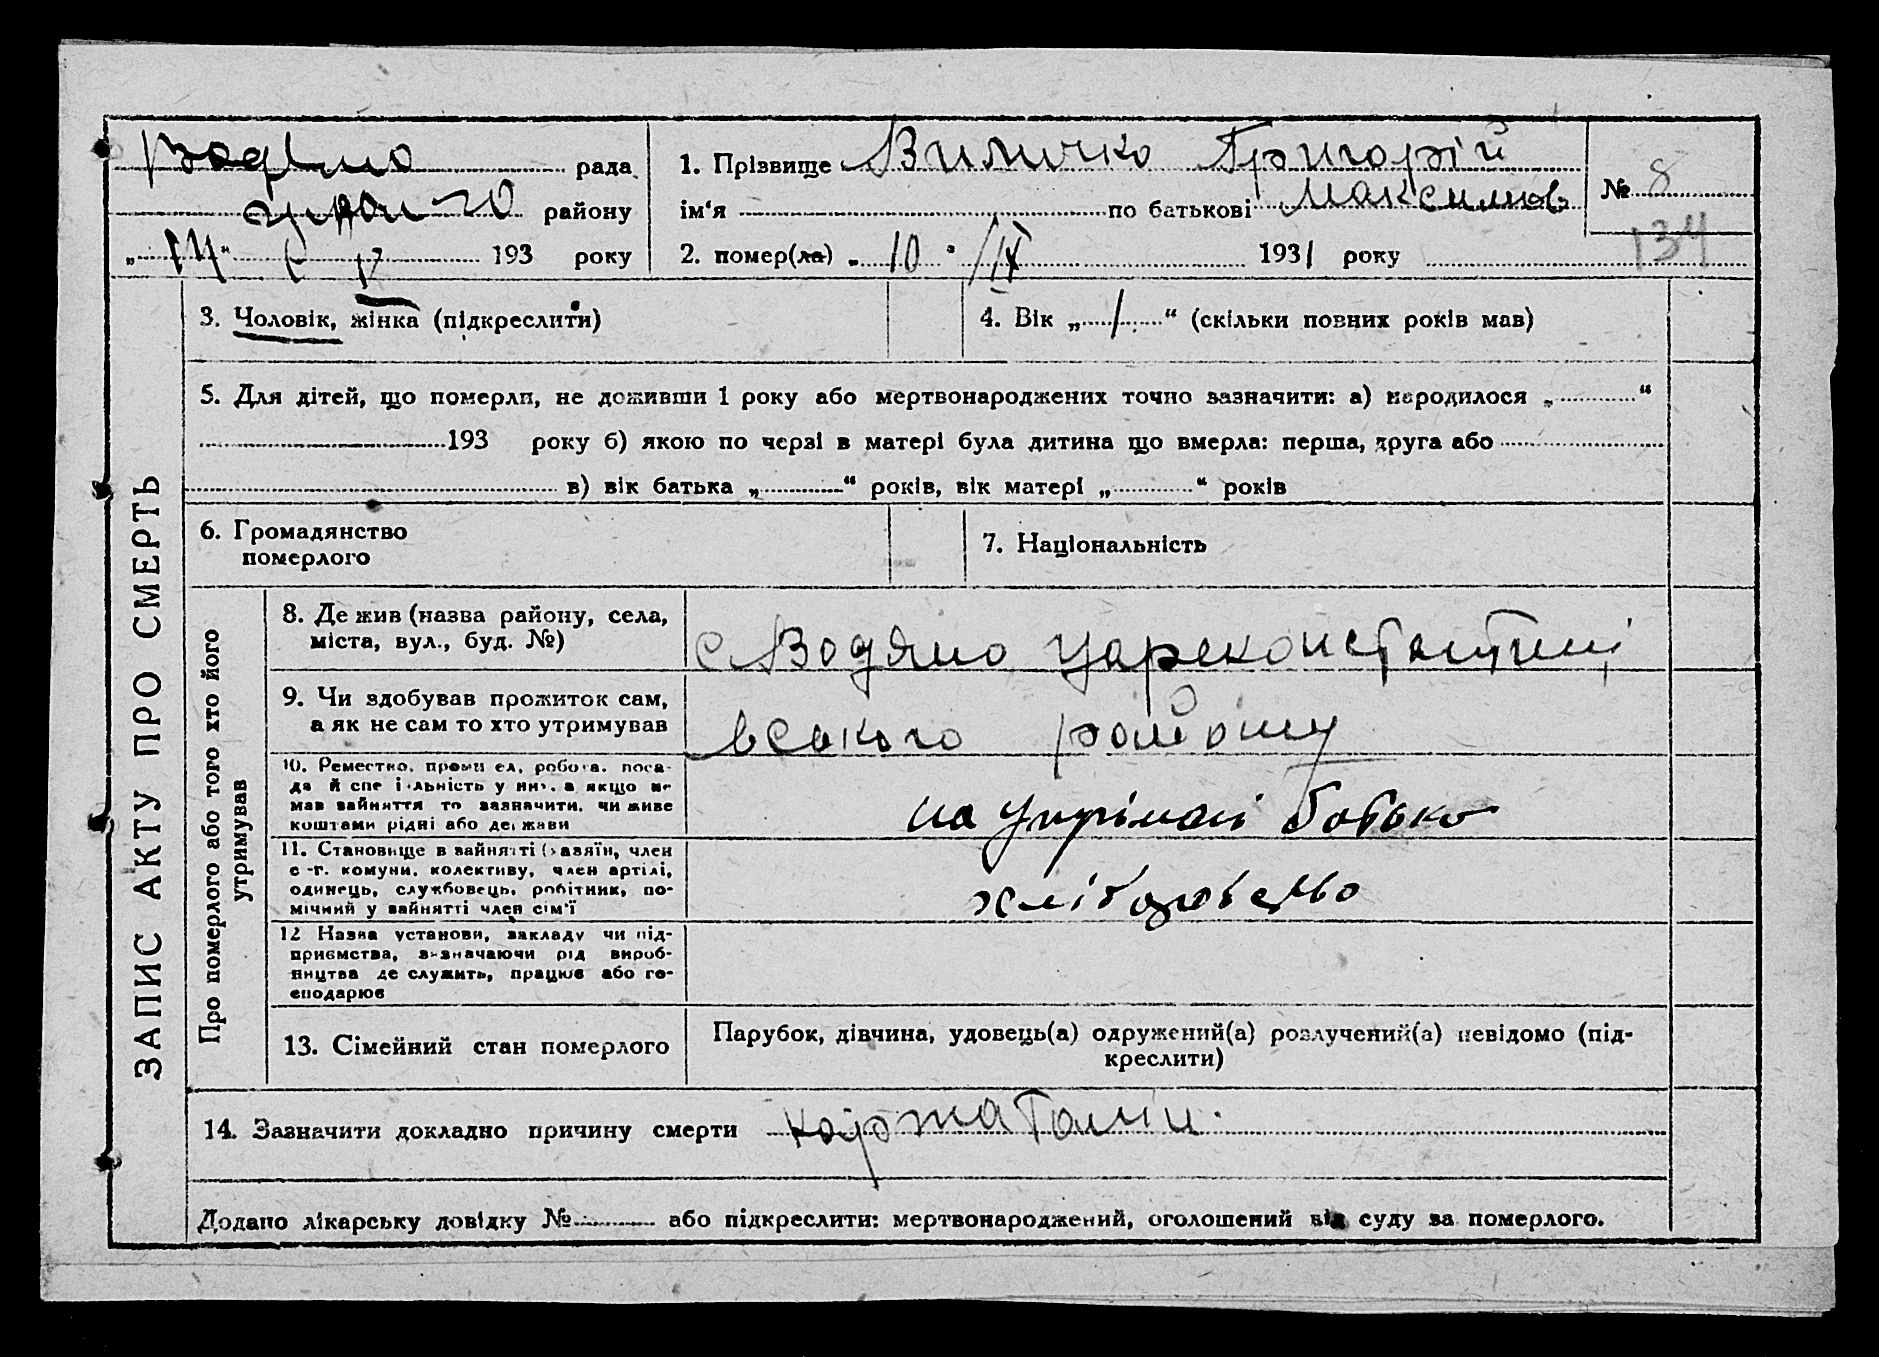 рада
району
„ 14 “ 193 року
1. Прізвище Величко Григорій
ім‘я по батькові Максимов
2. помер(ла) „ 10 “ /ІХ 1931 року
№ 8
134
3. Чоловік, жінка (підкреслити)
4. Вік „ 1 “ (скільки повних років мав)
5. Для дітей, що померли, не доживши 1 року або мертвонароджених точно зазначити: а) народилося „ “
193 року б) якою по черзі в матері була дитина що вмерла: перша, друга або
в) вік батька „ “ років, вік матері „ “ років
6. Громадянство
померлого
7. Національність
ЗАПИС АКТУ ПРО СМЕРТЬ
Про померлого або того хто його
утримував
8. Де жив (назва району, села,
міста, вул., буд. №)
с Водяно Цареконстянтині
9. Чи здобував прожиток сам,
а як не сам то хто утримував
вського району
10. Ремество, промисел, робота, поса-
да й спеціяльність у них, а якщо не
мав зайняття то зазначити, чи живе
коштами рідні або держави
на утрімані батька
11. Становище в зайнятті (хазяїн, член
с.-г. комуни, колективу, член артілі,
одинець, службовець, робітник, по-
мічний у зайнятті член сім‘ї
хліборобство
12 Назва установи, закладу чи під-
приємства, зазначаючи рід вироб-
ництва де служить, працює або го-
сподарює
13. Сімейний стан померлого
Парубок, дівчина, удовець(а) одружений(а) розлучений(а) невідомо (під-
креслити)
14. Зазначити докладно причину смерти
Додано лікарську довідку № або підкреслити: мертвонароджений, оголошений від суду за померлого.